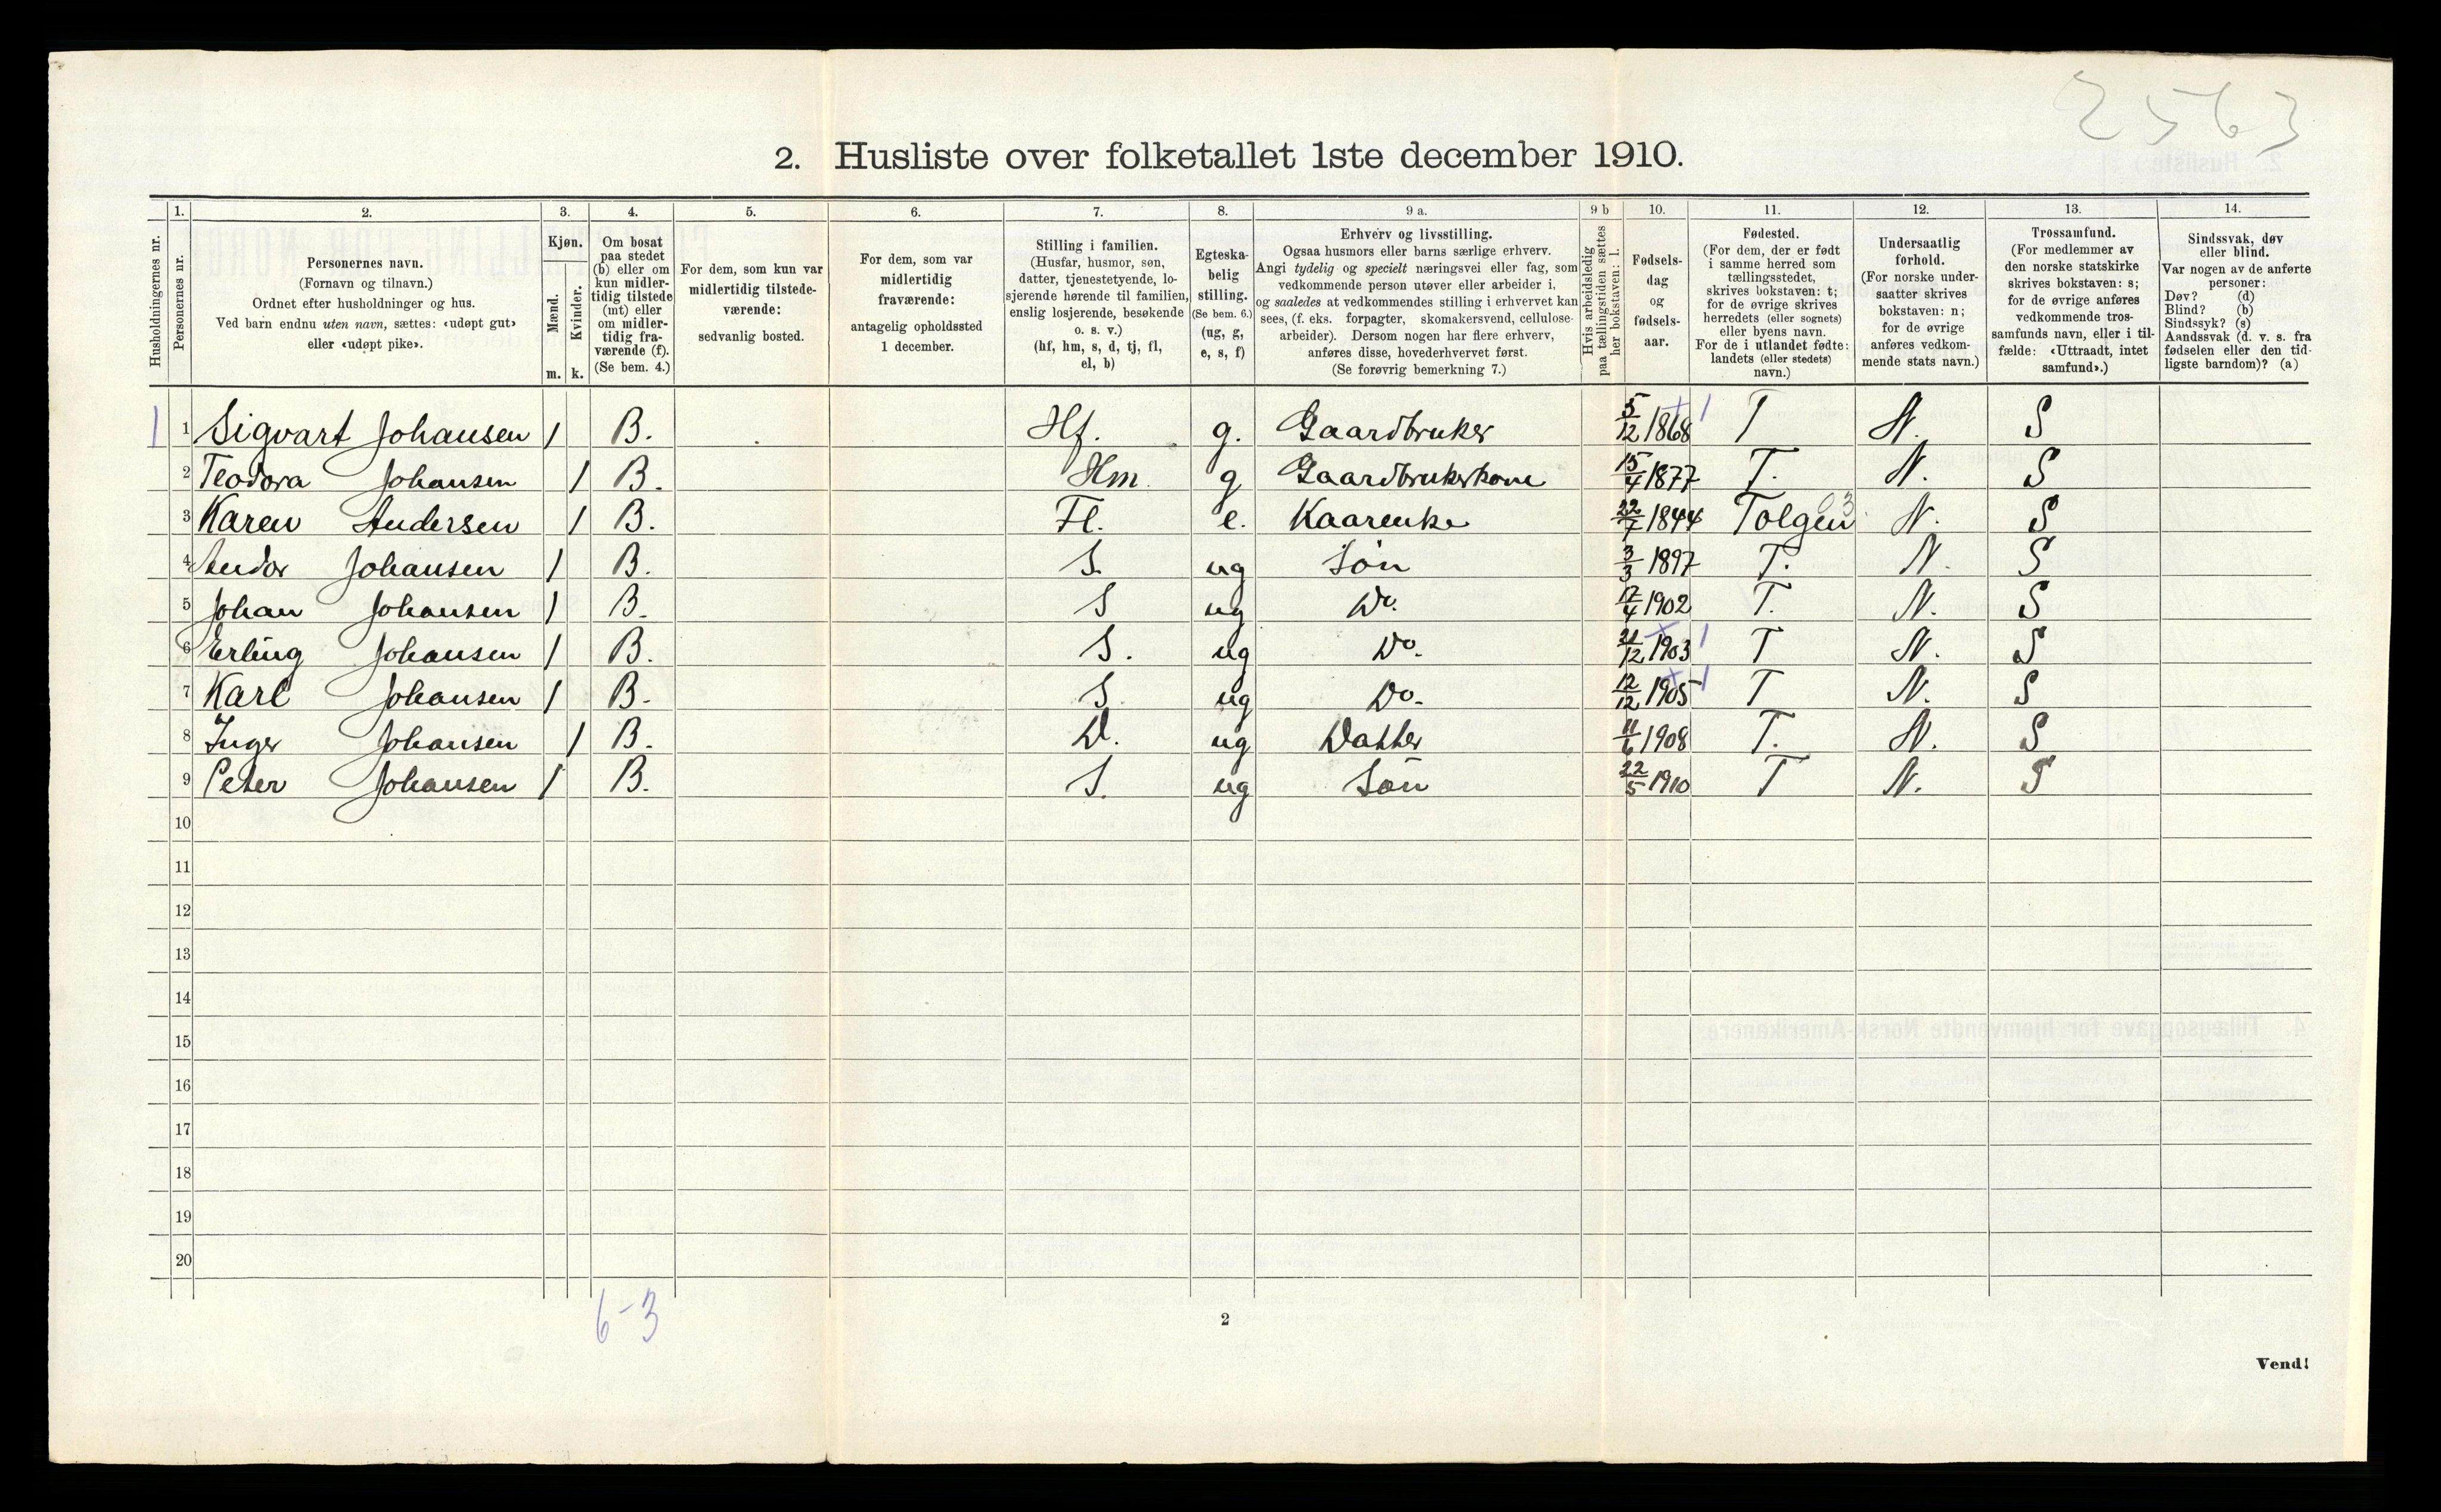 2563
2. Husliste over folketallet 1ste december 1910.
Husholdningernes nr.
1.
Personernes nr.
2.
Personernes navn.
(Fornavn og tilnavn.)
Ordnet efter husholdninger og hus.
Ved barn endnu uten navn, sættes: «udøpt gut»
eller «udøpt pike».
3.
Kjøn.
Mænd.
Kvinder.
m. k.
4.
Om bosat
paa stedet
(b) eller om
kun midler-
tidig tilstede
(mt) eller
om midler-
tidig fra-
værende (f).
(Se bem. 4.)
5.
For dem, som kun var
midlertidig tilstede-
værende:
sedvanlig bosted.
6.
For dem, som var
midlertidig
fraværende:
antagelig opholdssted
1 december.
7.
Stilling i familien.
(Husfar, husmor, søn,
datter, tjenestetyende, lo-
sjerende hørende til familien,
enslig losjerende, besøkende
o. s. v.)
(hf, hm, s, d, tj, fl,
el, b)
8.
Egteska-
belig
stilling.
(Se bem. 6.)
(ug, g,
e, s, f)
9 a.
Erhverv og livsstilling.
Ogsaa husmors eller barns særlige erhverv.
Angi tydelig og specielt næringsvei eller fag, som
vedkommende person utøver eller arbeider i,
og saaledes at vedkommendes stilling i erhvervet kan
sees, (f. eks. forpagter, skomakersvend, cellulose-
arbeider). Dersom nogen har flere erhverv,
anføres disse, hovederhvervet først.
(Se forøvrig bemerkning 7.)
9 b
Hvis arbeidsledig
paa tællingstiden sættes
her bokstaven: l.
10.
Fødsels-
dag
og
fødsels-
aar.
11.
Fødested.
(For dem, der er født
i samme herred som
tællingsstedet,
skrives bokstaven: t;
for de øvrige skrives
herredets (eller sognets)
eller byens navn.
For de i utlandet fødte:
landets (eller stedets)
navn.)
12.
Undersaatlig
forhold.
(For norske under-
saatter skrives
bokstaven: n;
for de øvrige
anføres vedkom-
mende stats navn.)
13.
Trossamfund.
(For medlemmer av
den norske statskirke
skrives bokstaven: s;
for de øvrige anføres
vedkommende tros-
samfunds navn, eller i til-
fælde: «Uttraadt, intet
samfund».)
14.
Sindssvak, døv
eller blind.
Var nogen av de anførte
personer:
Døv? (d)
Blind? (b)
Sindssyk? (s)
Aandssvak (d. v. s. fra
fødselen eller den tid-
ligste barndom)? (a)
1 1 Sigvart Johansen 1 B. Hf. g. Gaardbruker 5/12 1868 + 1 T N. S
2 Teodora Johansen 1 B. Hm. g Gaardbrukerkone 15/4 1877 T. N. S
3 Karen Andersen 1 B. Fl. e. Kaarenke 22/7 1844 Tolgen 03 N. S
4 Andor Johansen 1 B. S. ug Søn 3/3 1897 T. N. S
5 Johan Johansen 1 B. S ug Do. 17/4 1902 T. N. S
6 Erling Johansen 1 B. S. ug Do. 21/12 1903 + 1 T N. S
7 Karl Johansen 1 B. S ug Do. 12/12 1905 + 1 T N. S
8 Inger Johansen 1 B. D. ug Datter 11/6 1908 T. N. S
9 Peter Johansen 1 B. S. ug Søn 22/5 1910 T N. S
10
11
12
13
14
15
16
17
18
19
20
6-3
2
Vend!